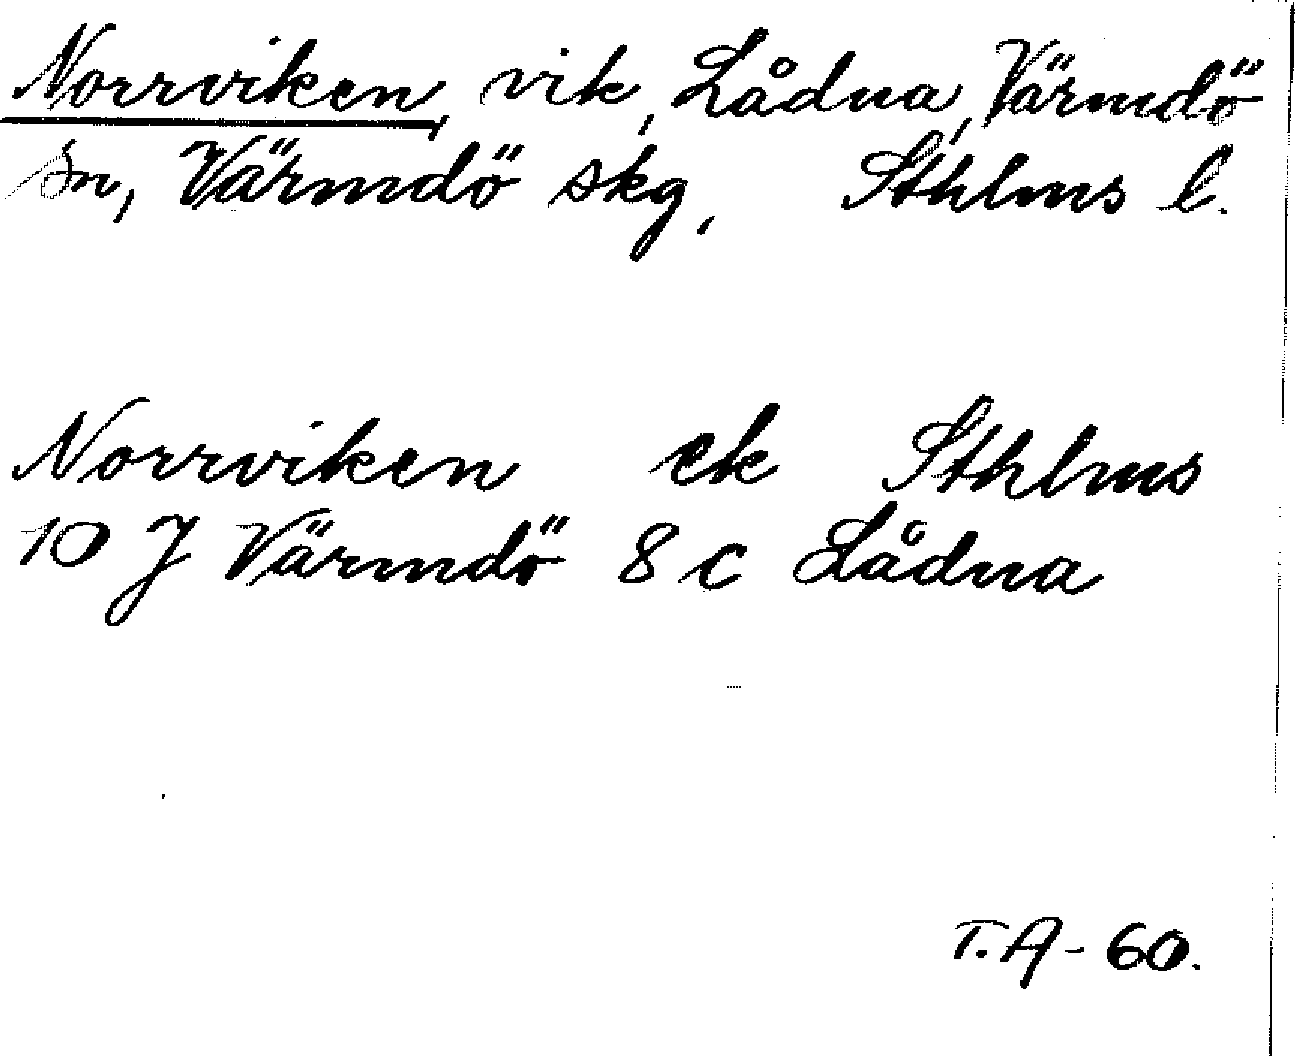 Norrviken, vik, Lådna, Värmdö
sn, Värmdö skg, Sthlms l.
Norrviken ek Sthlms
10 J Värmdö 8 c Lådna
T.A-60.